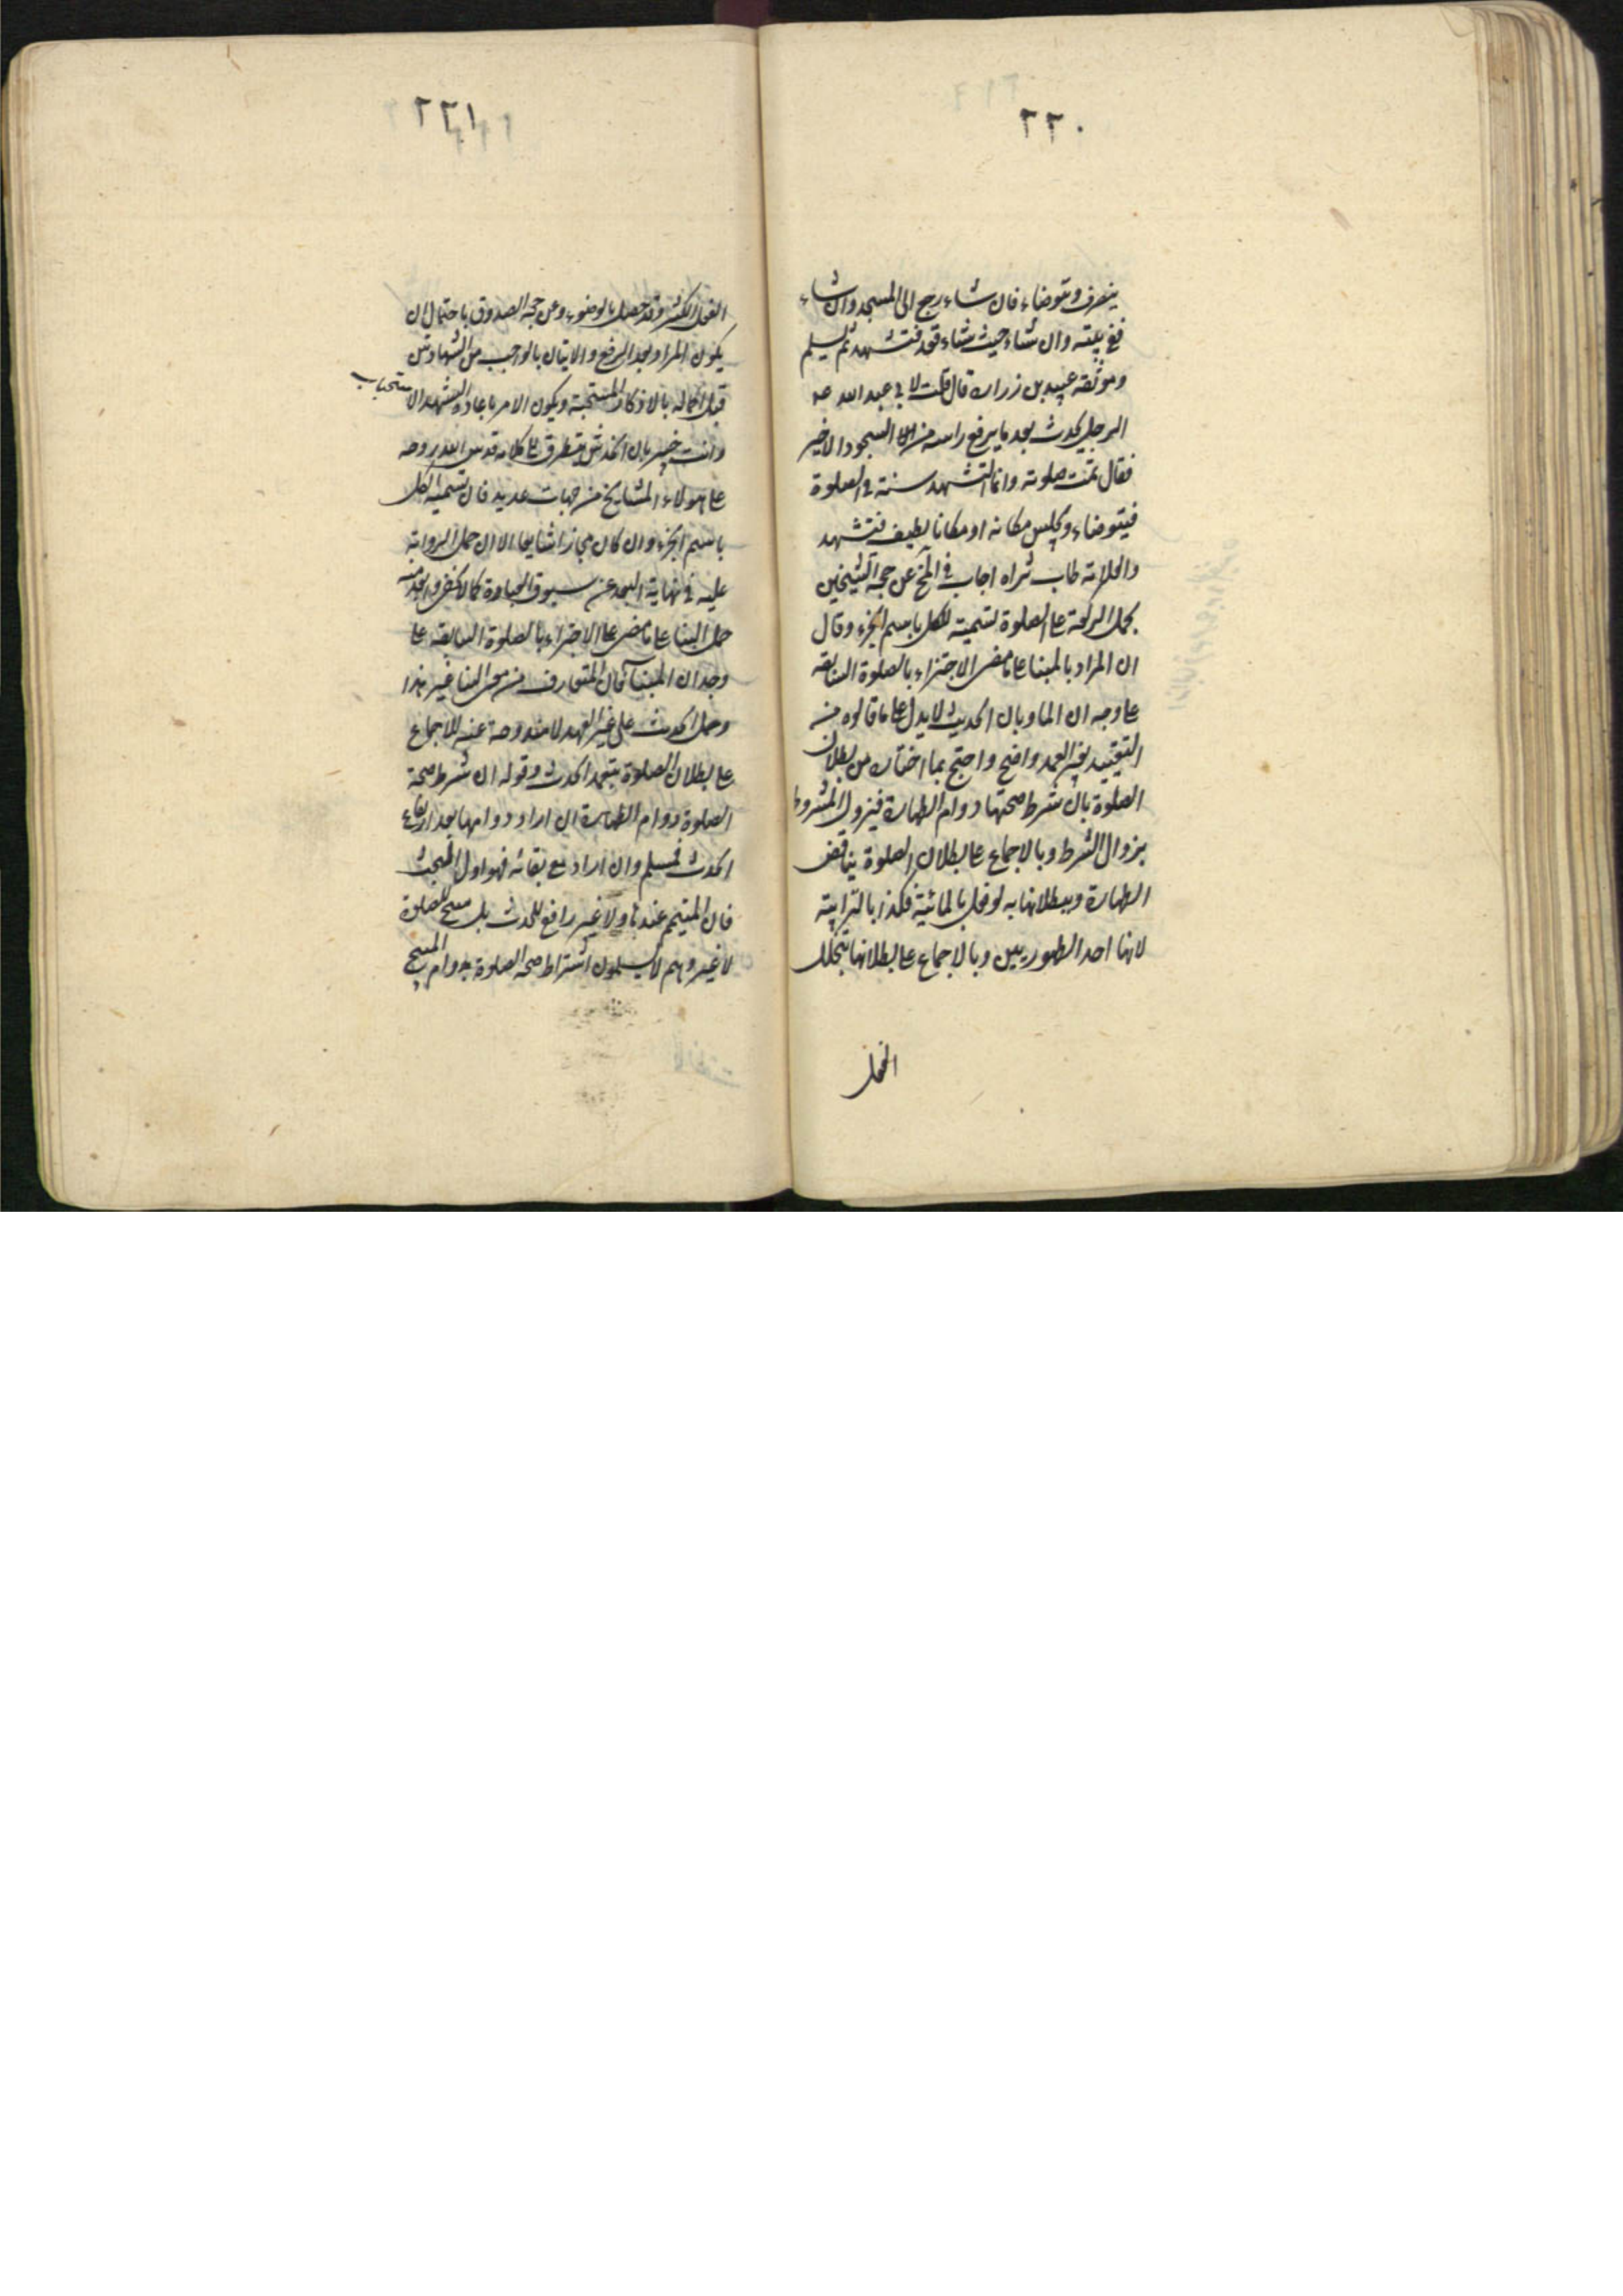 ٢٢٠
ينصرف ويتوضاء فان شاء رجع الى المسجد وان شاء
ففي بيته وان شاء حيث شاء قعد فتشهد ثم يسلم
وموثقة عبيد بن زرارة قال قلت لابي عبد الله عه
الرجل يحدث بعد ما يرفع راسه من السجود الاخير
فقال تمت صلوته وانما التشهد سنة في الصلوة
فيتوضاء ويجلس مكانه او مكانا نظيفا فتشهد
والعلامة طاب ثراه اجاب في المخ عن حجة الشيخين
بحمل الركعة على الصلوة تسمية للكل باسم الجزء وقال
ان المراد بالبناء على ما مضى الاجتزاء بالصلوة السابقة
على وجدان الماء وبان الحديث لا يدل على ما قالوه منه
التقييد بغير العمد واضح واحتج بما اختاره من بطلان
الصلوة بان شرط صحتها دوام الطهارة فيزول المشروط
بزوال الشرط وبالاجماع على بطلان الصلوة بناقض
الطهارة وببطلانها به لو فعل بالمائية فكذا بالترابية
لانها احد الطهورين وبالاجماع على بطلانها بتخلل
الفعل
٢٢١
الفعل الكثير وقد حصل بالوضوء وعن حجة الصدوق باحتمال ان
يكون المراد بعد الرفع والاتيان بالواجب من الشهادتين
قبل اكماله بالاذكار المستحبة ويكون الامر باعادة التشهد للاستحباب
وانت خبير بان الخدش يتطرق الى كلامه قدس الله روحه
على هولاء المشايخ من جهات عديده فان تسمية الكل
باسم الجزء وان كان مجازا شايعا الا ان حمل الرواية
عليه في نهاية البعد عن سوق العبارة كما لا يخفى وابعد منه
حمل البناء على ما مضى على الاجتزاء بالصلوة السابقة على
وجدان الماء فان المتعارف من معنى البناء غير هذا
وحمل الحدث على غير العمد لا مندوحة عنه للاجماع
على بطلان الصلوة بتعمد الحدث وقوله ان شرط صحة
الصلوة دوام الطهارة ان اراد دوامها بعد ارتفاع
الحدث فمسلم وان اراد مع بقائه فهو اول البحث
فان التيمم عندنا ولا غير رافع للحدث بل مبيح للصلوة
لا غير وهم لا يسلمون اشتراط صحة الصلوة بدوام المبيح